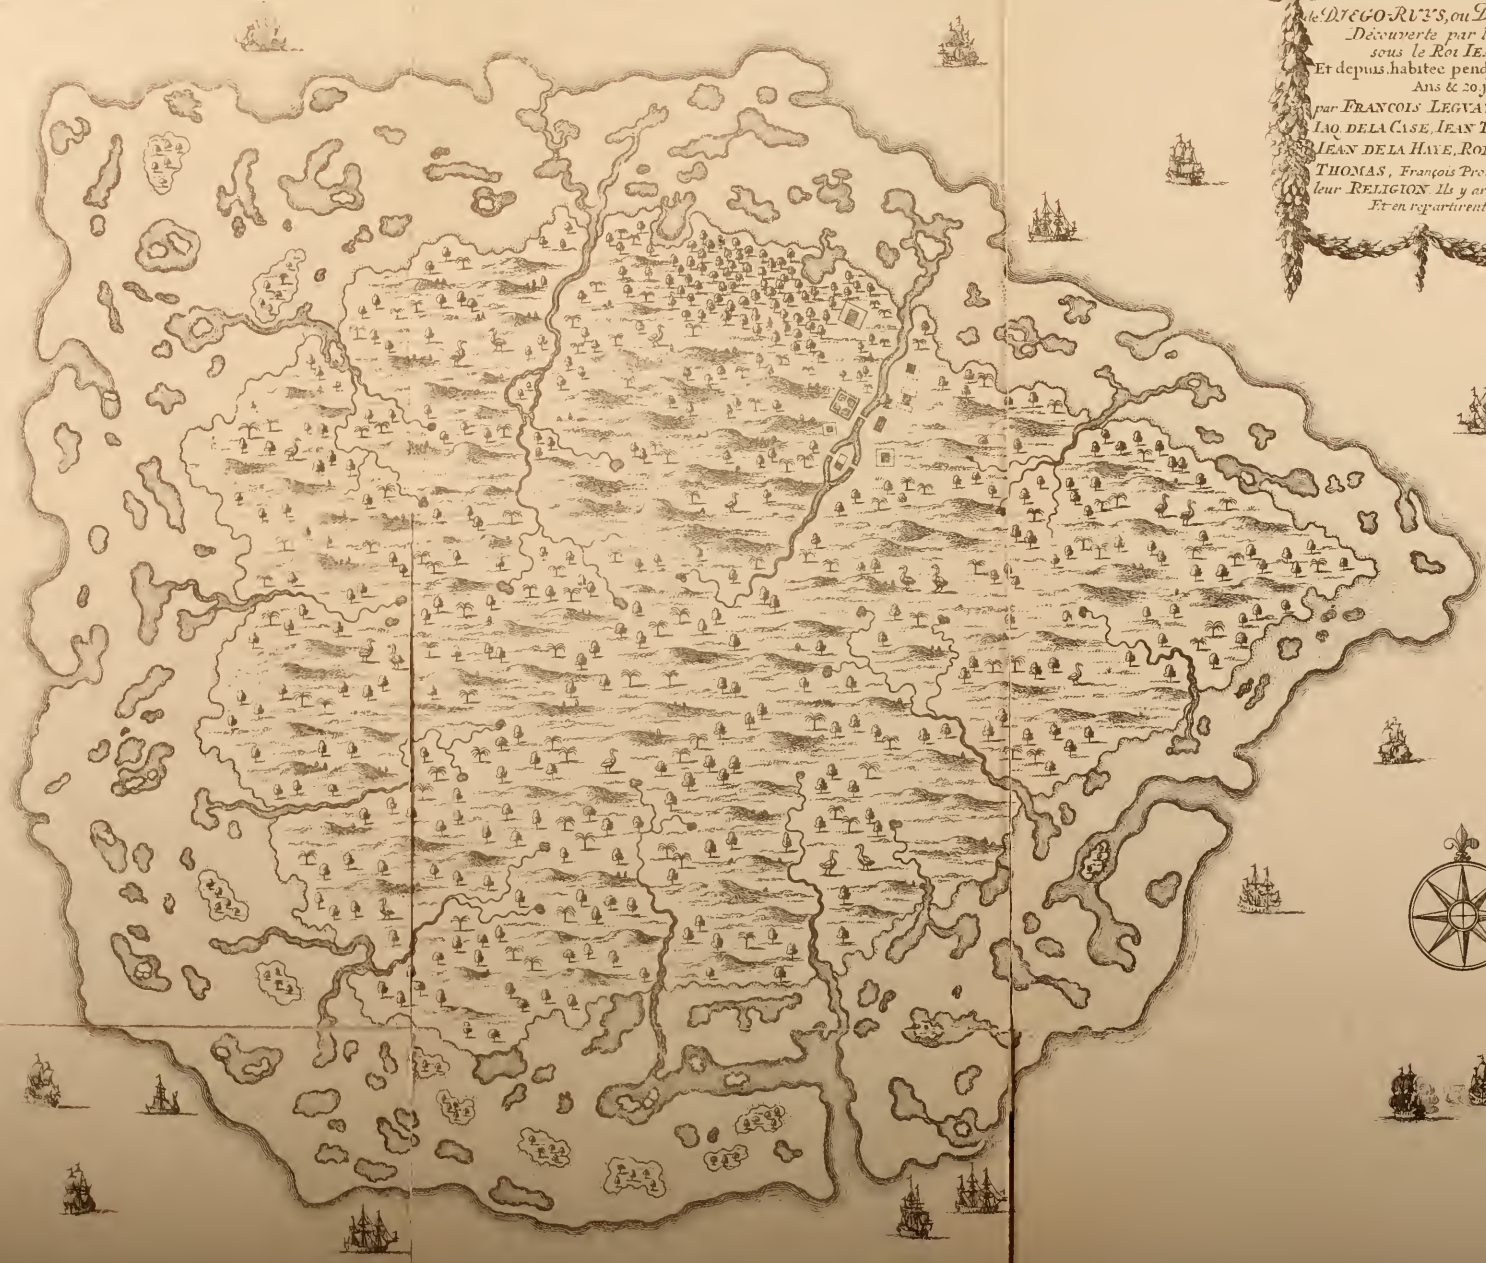 de DIEGO-RUYS, ou D
Découverte par l
sous le Roi IE
Et depuis habitee pend
Ans & 20 j
par FRANCOIS LEGVA
IAQ. DE LA CASE, IEAN T
IEAN DE LA HAYE, RO
THOMAS, François Pro
leur RELIGION. Ils y ar
Et en repartirent